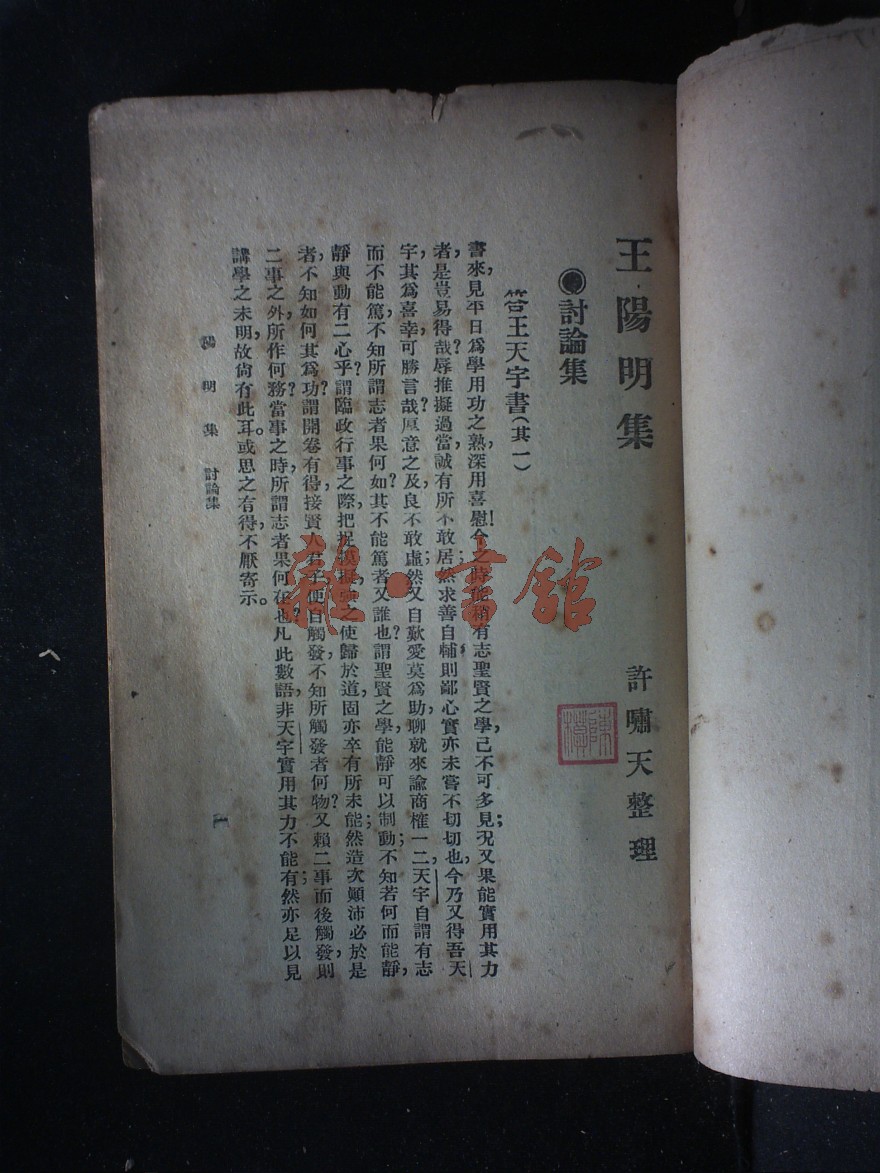 王陽明集
許嘯天整理
討論集
答王天宇書(其一)
書來,見平日爲學用功之熟,深用喜慰!今之時能稍有志聖賢之學,己不可多見;況又果能實用其力
者,是豈易得哉?辱推擬過當,誠有所不敢居;然求善自輔,則鄙心實亦未嘗不切切也,今乃又得吾天
宇,其爲喜幸,可勝言哉?厚意之及,良不敢虛;然又自歎愛莫爲助,聊就來諭商榷一二,天宇自謂有志
而不能篤,不知所謂志者果何如?其不能篤者又誰也?謂聖賢之學,能靜可以制動;不知若何而能靜,
靜與動有二心乎?謂臨政行事之際,把捉模擬,強之使歸於道,固亦卒有所未能;然造次顚沛必於是
者,不知如何其爲功?謂開卷有得,接賢人君子便自觸發,不知所觸發者何物?又賴二事而後觸發,則
二事之外,所作何務?當事之時,所謂志者果何在也?凡此數語,非天宇實用其力不能有,然亦足以見
講學之未明,故尙有此耳。或思之有得,不厭寄示。
陽明集 討論集
一
雜·書館